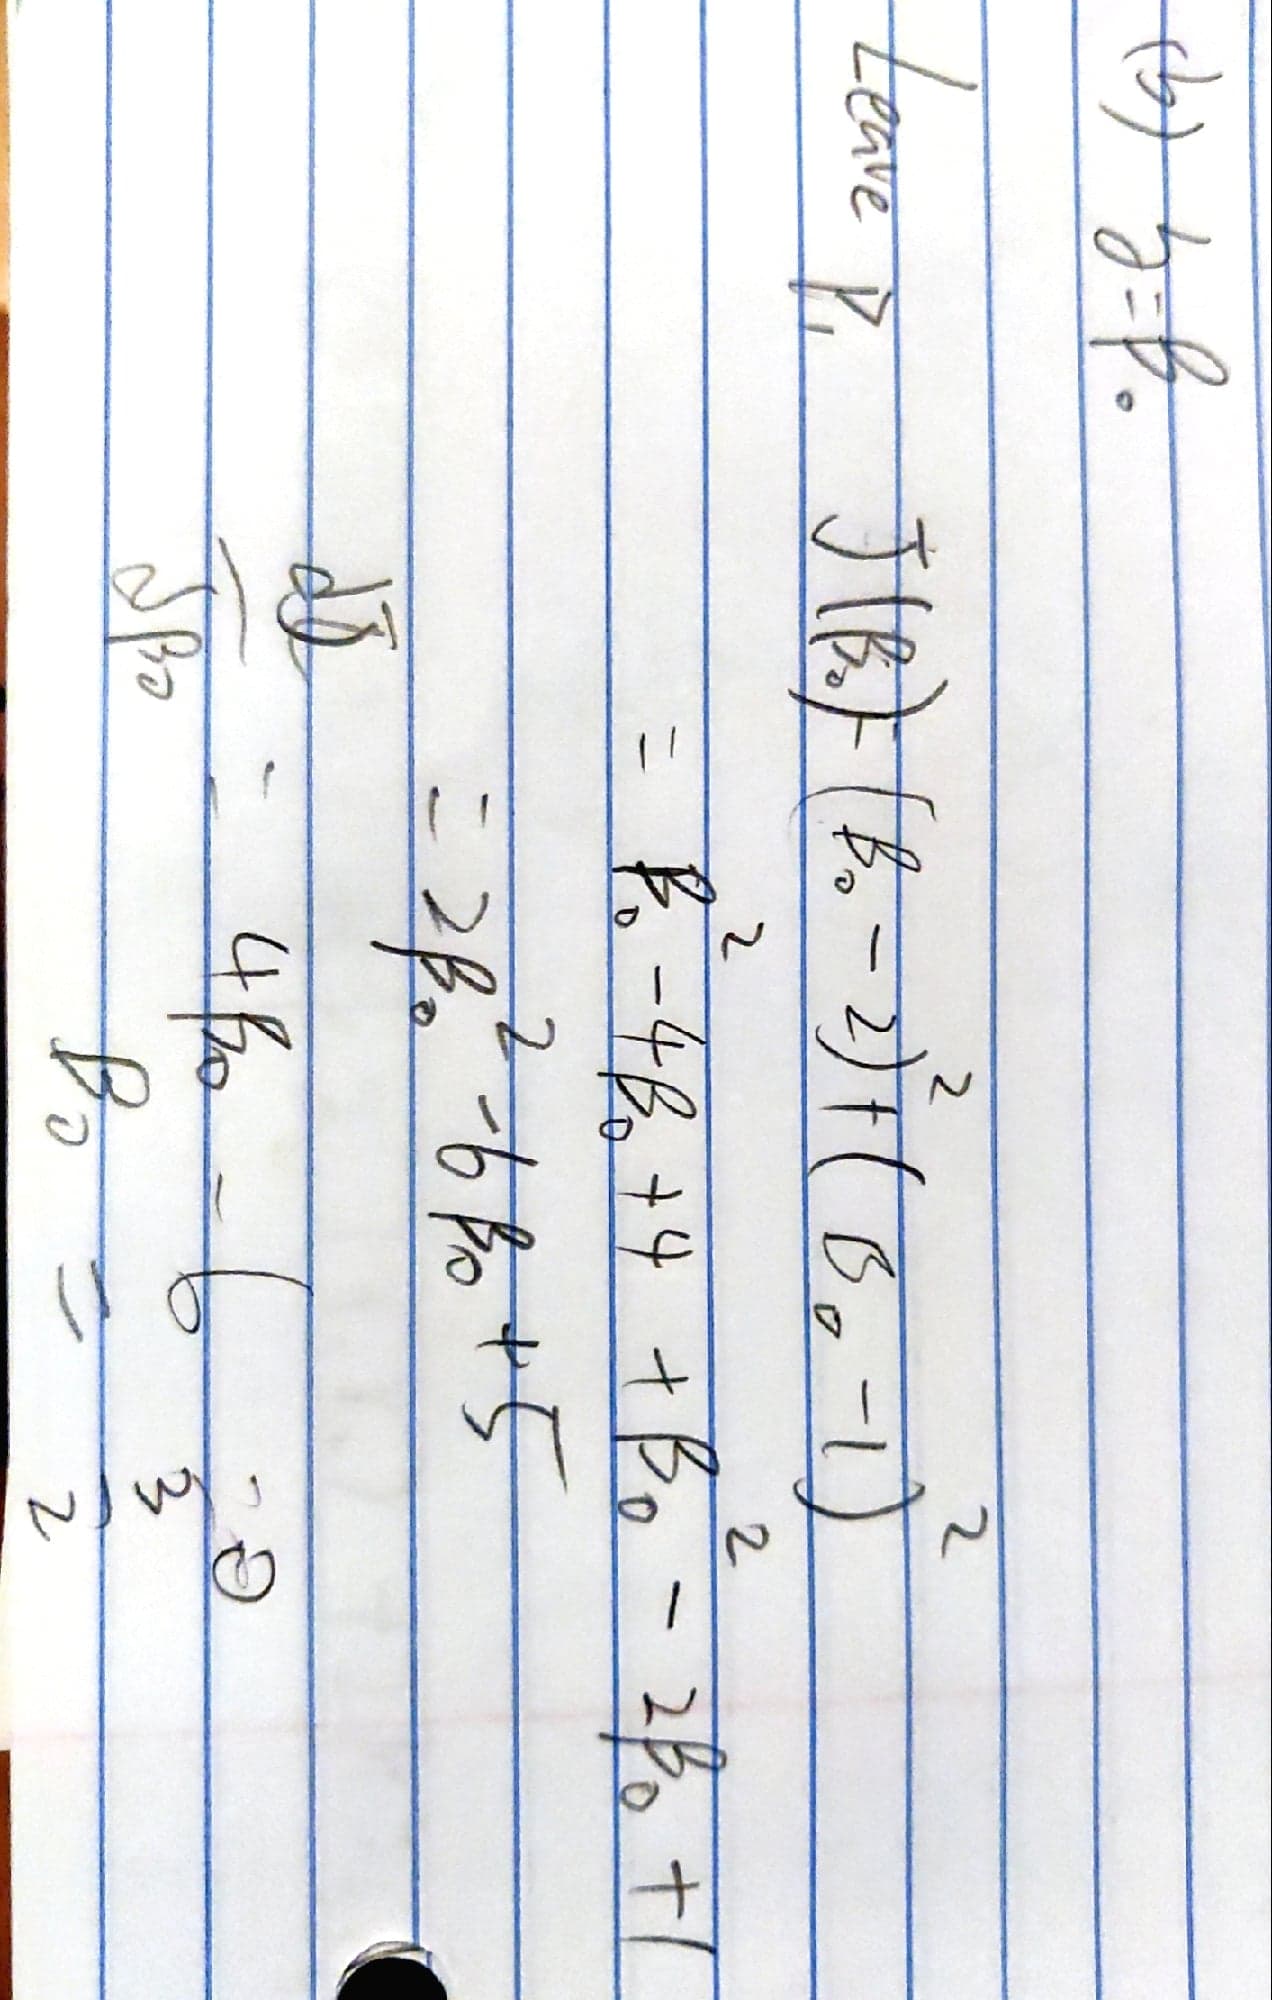 (b) y=β₀
Leave P₁ J(β₀)=(β₀-2)²+(β₀-1)²
= β₀²-4β₀+4 +β₀²-2β₀+1
= 2β₀²-6β₀+5
dJ/dβ₀ = 4β₀-6 =0
β₀ = 3/2